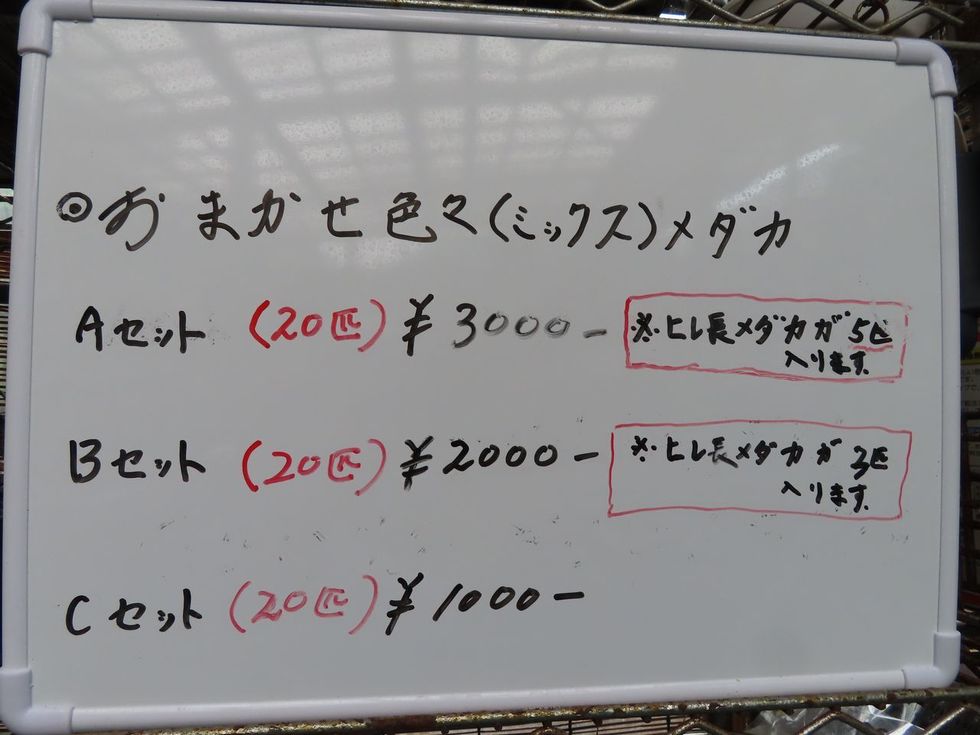 ◎おまかせ色々(ミックス)メダカ
Aセット (20匹) ¥3000-
※ヒレ長メダカが5匹
入ります
Bセット (20匹) ¥2000-
※ヒレ長メダカが3匹
入ります
Cセット (20匹) ¥1000-